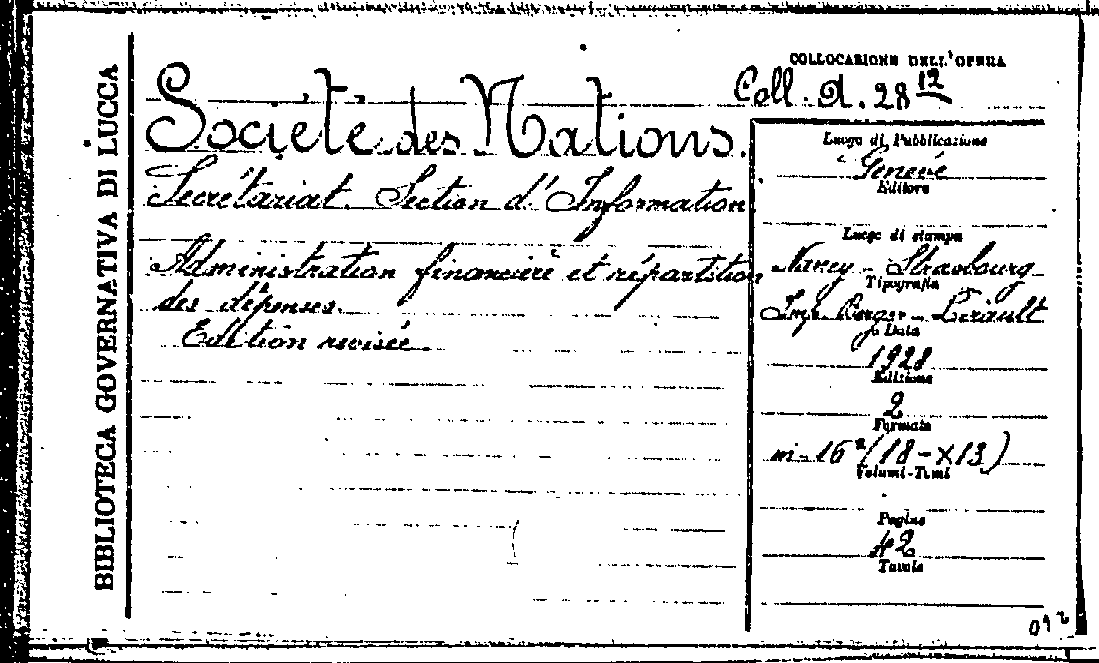 BIBLIOTECA GOVERNATIVA DI LUCCA
Société des Nations.
Secrétariat. Section d'Information
Administration financière et répartition
des dépenses.
Edition revisée
COLLOCAZIONE DELL'OPERA
Coll. A. 28 12
Luogo di Pubblicazione
Genevè
Editore
Luogo di stampa
Nancy - Strasbourg
Tipografia
Imp. Berger-Levrault
Data
1928
Edizione
2
Formato
in-16° (18-X13)
Volumi-Tomi
Pagine
42
Tavole